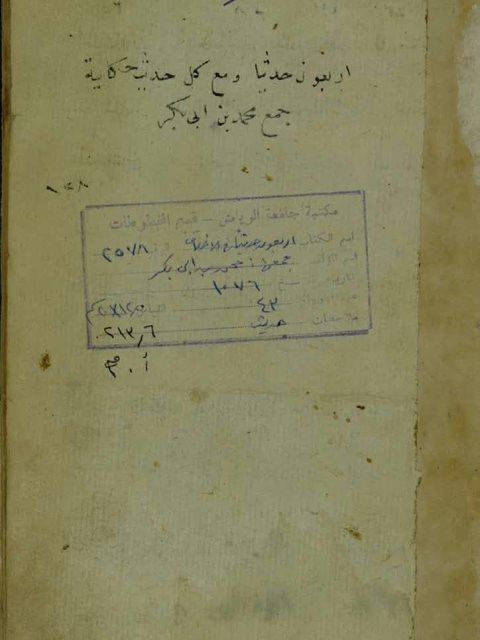 اربعون حديثا ومع كل حديث حكاية
جمع محمد بن ابى بكر
١٣٨
مكتبة جامعة الرياض - قسم المخطوطات
اسم الكتاب اربعون حديثا الرقم ٢٥٧٨
اسم المؤلف جمعها : محمد بن ابى بكر
تاريخ النسخ ١٠٧٦
عدد الأوراق ٤٣
ملاحظات حديث ٢١٣٫٦
أ . م